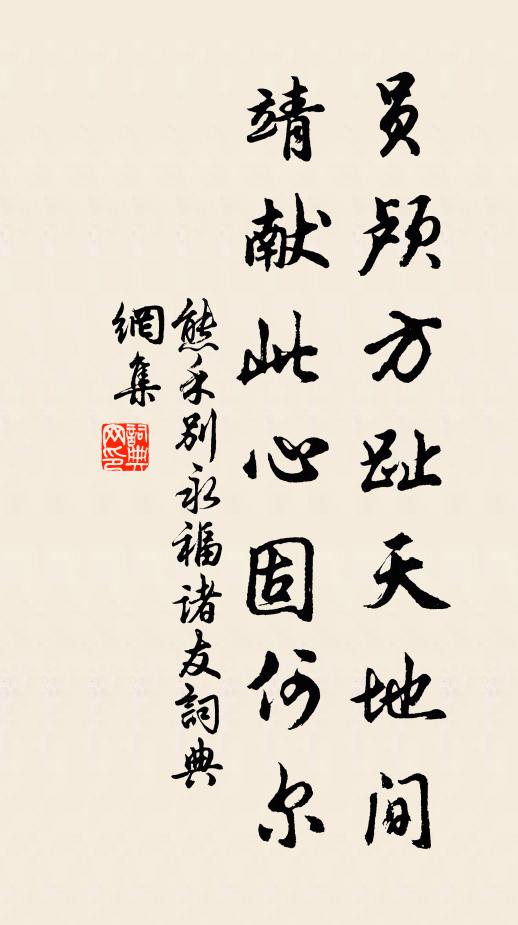 员颅方趾天地间
靖献此心固何尔
熊禾别永福诸友詞典
網集
詞典
网印